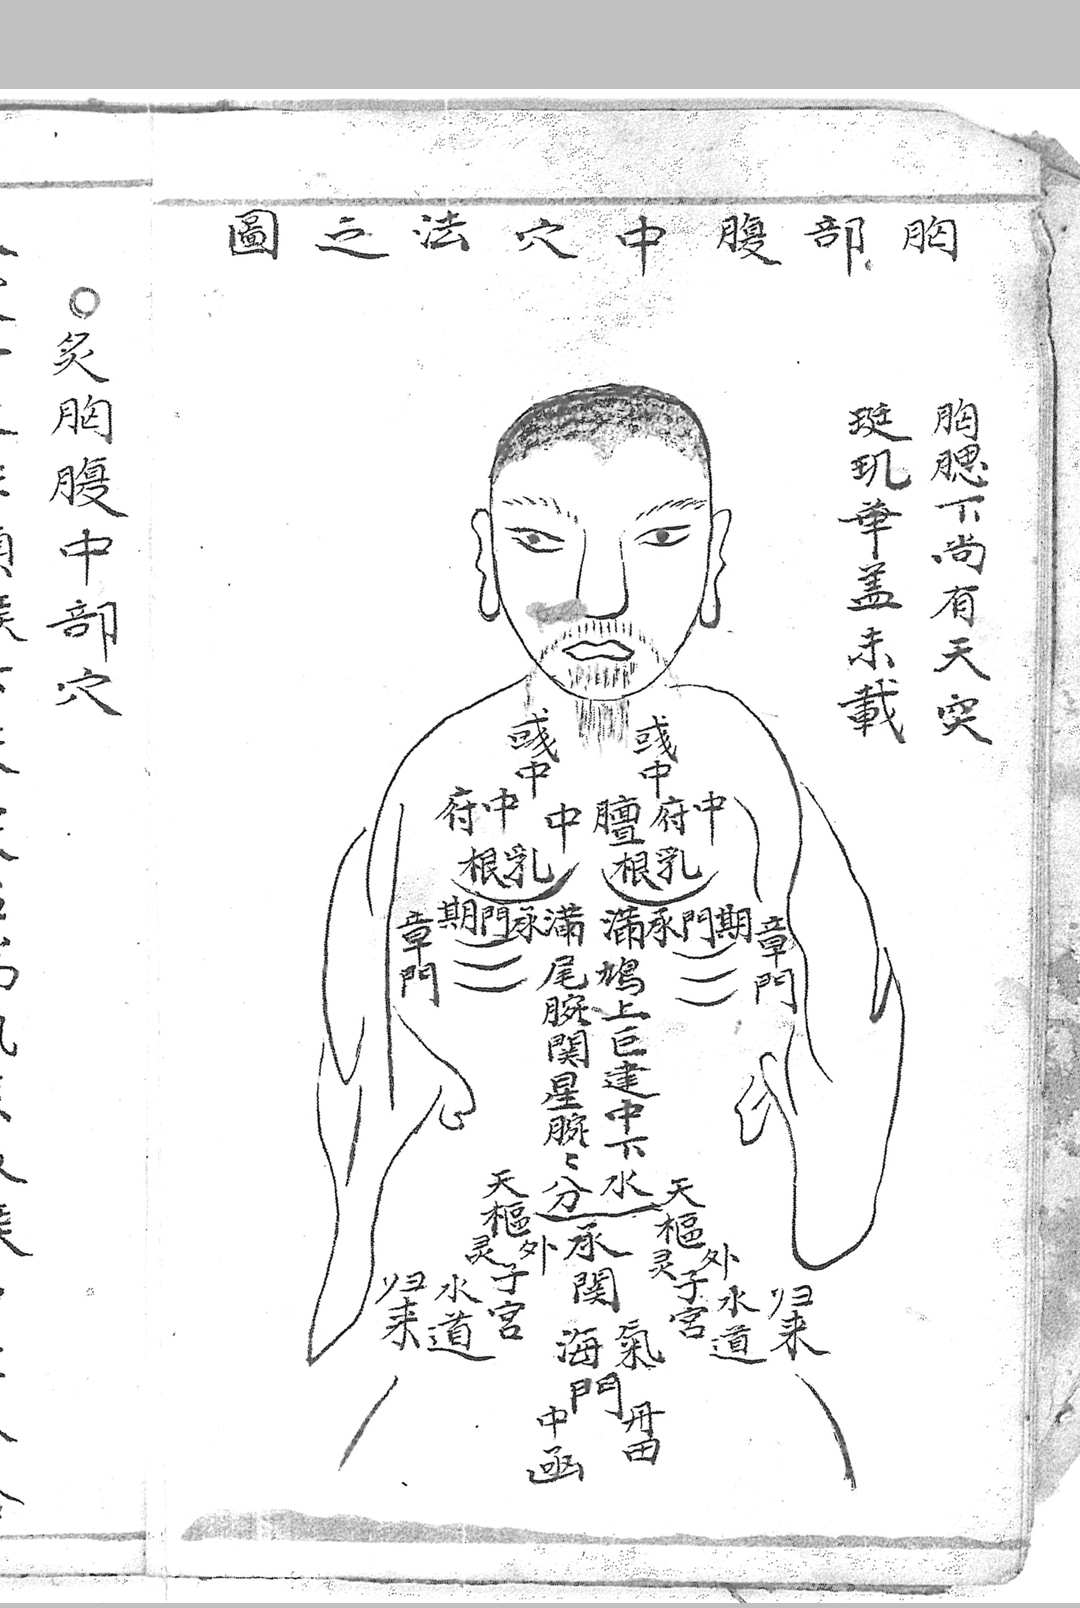 胸部腹中穴法之圖
胸腮下尚有天突
璇璣華盖未載
彧中
彧中
中府
中府
膻中
乳根
乳根
期門
期門
承滿
承滿
章門
章門
鳩尾
上腕
巨関
建星
中腕
下〻
水分
天樞
天樞
外灵
外灵
子宮
子宮
水道
水道
归来
归来
承関
氣海
門
丹田
中函
○炙胸腹中部穴